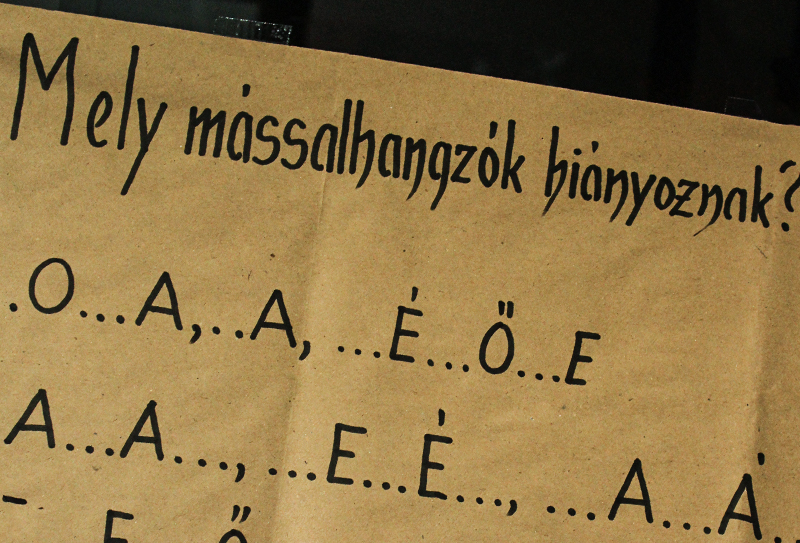 Mely mássalhangzók hiányoznak?
.O...A,..A, ...É...Ő...E
A...A..., ...E...É..., ...A...Á..
E Ő